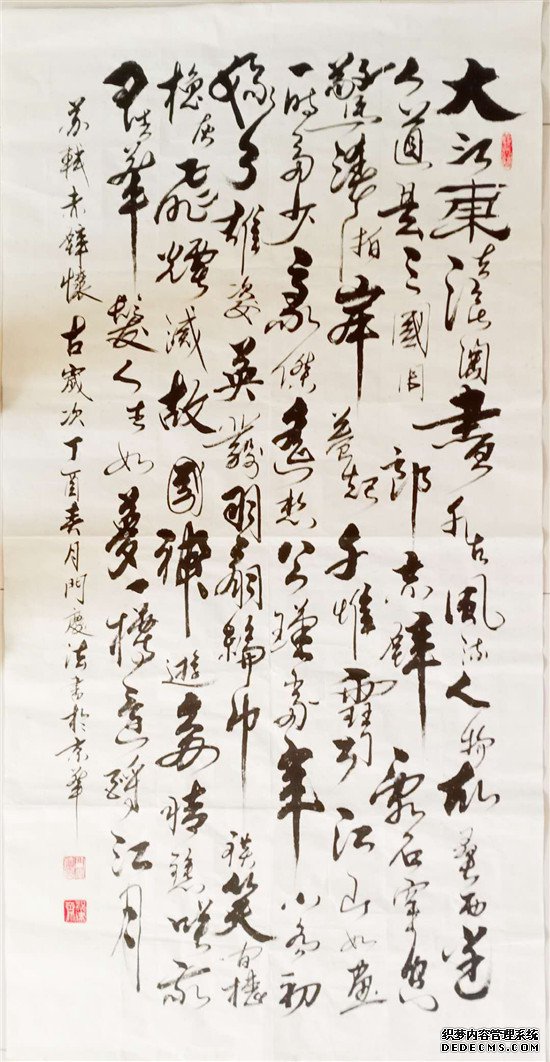 大江東去浪淘盡千古風流人物故壘西邊
人道是三國周郎赤壁亂石穿空
驚濤拍岸卷起千堆雪江山如畫
一時多少豪傑遙想公瑾當年小喬初
嫁了雄姿英發羽扇綸巾談笑間檣
櫓灰飛煙滅故國神遊多情應笑我
早生華髮人生如夢一樽還酹江月
蘇軾赤壁懷古歲次丁酉春月門慶法書於京華
织梦内容管理系统
DEDECMS.COM